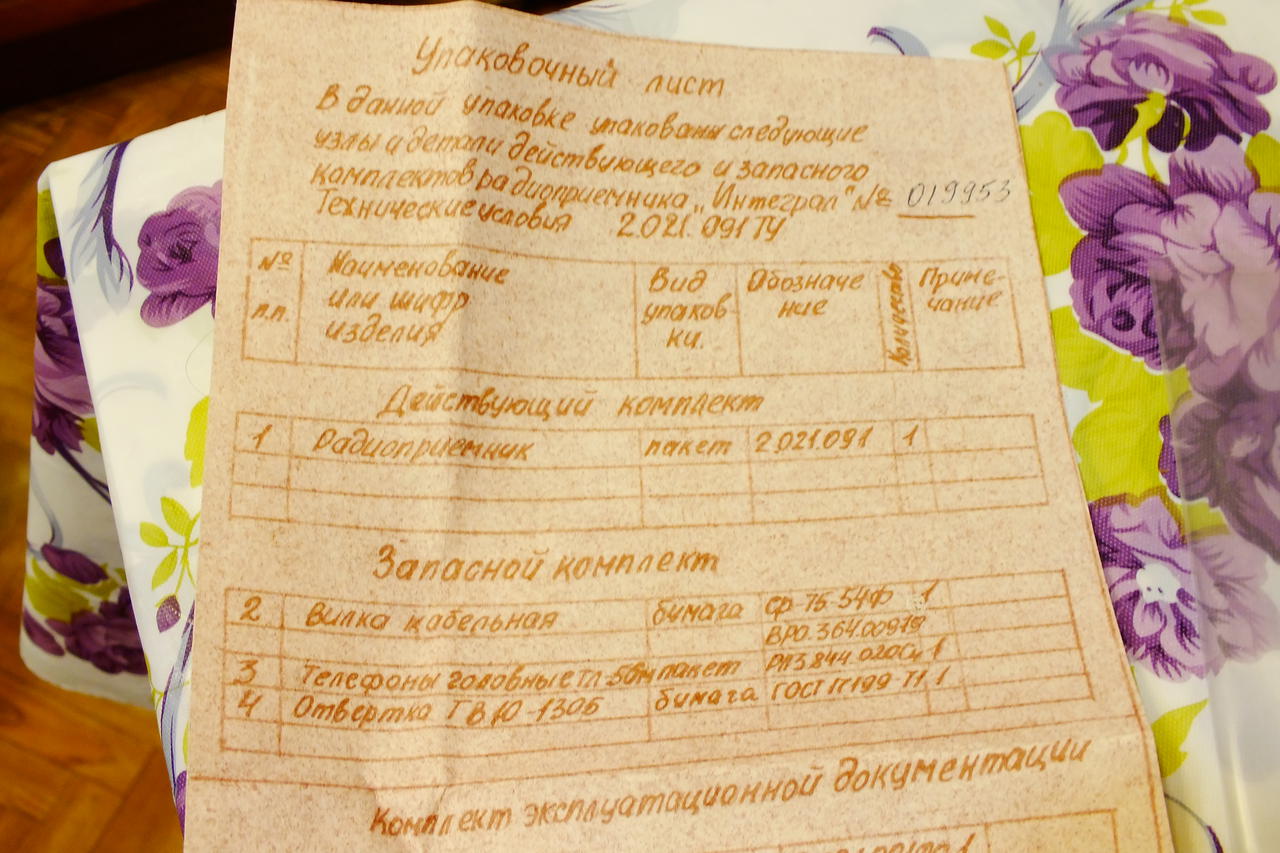 Упаковочный лист
В данной упаковке упакованы следующие
узлы и детали действующего и запасного
комплектов радиоприемника „Интеграл" № 019953
Технические условия 2.021.091 ТУ
№ п.п. Наименование или шифр изделия Вид упаков-ки. Обозначе ние Количество Приме-чание
Действующий комплект
1 Радиоприемник пакет 2.021.091 1
Запасной комплект
2 Вилка кабельная бумага ср-75-54Ф 1
ВРО.364.009
3 Телефоны головные пакет 1
4 Отвертка бумага ГОСТ 17199 1
Комплект эксплуатационной документации
1